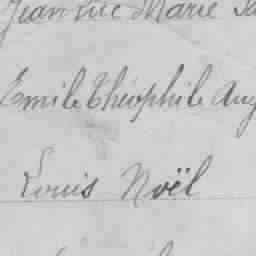 Jean Luc Marie
Emile Théophile Aug
Louis Noël